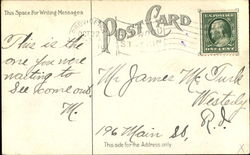 This Space for Writing Messages
POST CARD
ONE CENT
This is the
one you were
waiting to
see come out.
M.
Mr James Mc Turk
Westerly
R.I.
196 Main St,
This side for the Address only